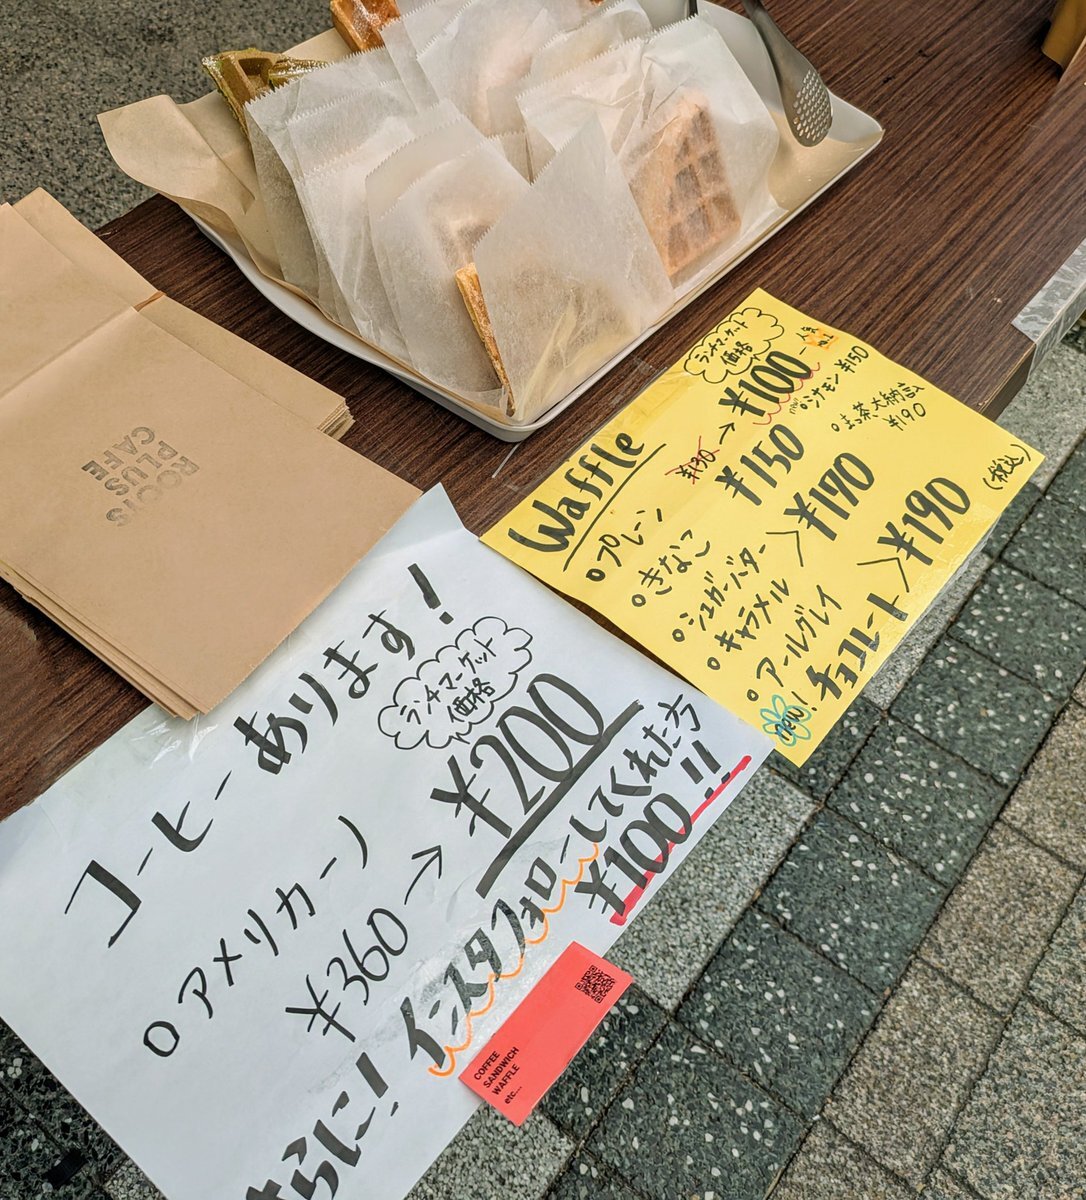 ROOTS
PLUS
CAFE
ランチマーケット
価格
Waffle
○プレーン ¥130 → ¥100 人気
No.1
○きなこ ¥150
○シュガーバター
○キャラメル
¥170
○アールグレイ
new! チョコレート
¥190
new ○シナモン ¥150
○お茶、大納言
¥190
(税込)
コーヒーあります!
ランチマーケット
価格
○アメリカーノ
¥360 → ¥200
さらに! インスタフォローしてくれた方
¥100!!
COFFEE
SANDWICH
WAFFLE
etc...